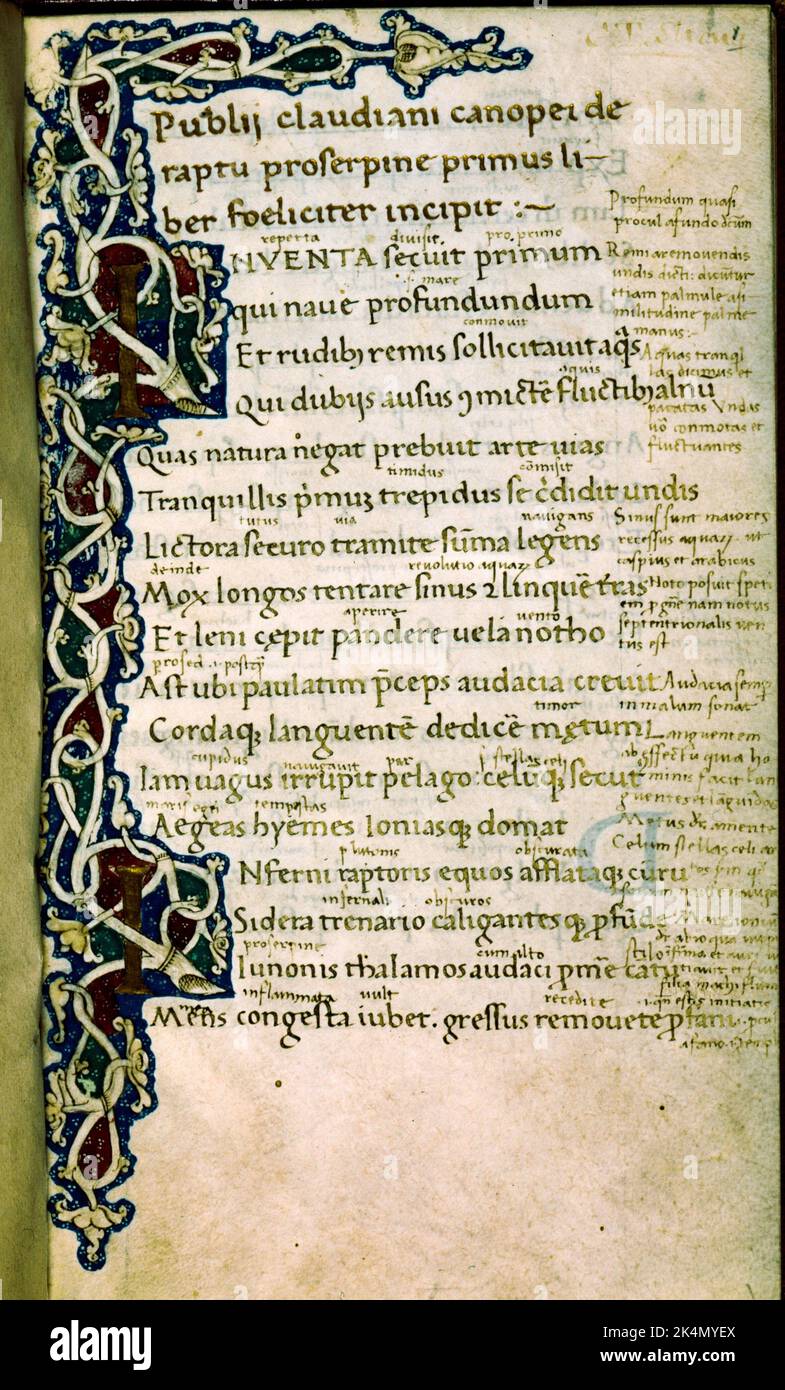 Publij claudiani canopei de
raptu proserpine primus li-
ber foeliciter incipit :~
reperta divisit pro. primo
INVENTA secuit primum
.i. mare
qui naue profundundum
conmouit
Et rudibꝫ remis sollicitauit aq̄s
aquis
Qui dubijs ausus ꝯmictē fluctibꝫ alnū
Quas natura n̄egat prebuit arte uias
timidus cōmisit
Tranquillis p̄muꝫ trepidus se c̄didit undis
tutus via nauigans
Lictora securo tramite sūma legens
deinde revolutio aquaꝝ
Mox longos tentare sinus ⁊ linquē t̄ras
aperire vento
Et leni cępit pandere uela notho
Ast ubi paulatim p̄ceps audacia creuit
timor
Cordaqꝫ languentē dedicē mętum
cupidus nauigauit par
Iam uagus irrupit pelago: celūqꝫ secut
tempestas
Aegęas hyemes Ioniasqꝫ domat
plutonis obscurata
INferni raptoris equos afflataqꝫ curu
infernali obscuros
Sidera trenario caligantesqꝫ ꝓfūdę
proserpine cum alto
Iunonis thalamos audaci
inflammata vult recedite
Mens congesta iubet. gressus remouete ꝓfani
Profundum quasi
procul a fundo
Remi a remouendis
undis
etiam palmule a si
militudine palme
manus:
Aquas tranql
las dicimus et
pacatas Undas
uo conmotas et
fluctuantes
Sinus sunt maiores
recessus aquaꝝ ut
caspius et arabicus
Noto posuit speti
em nam notus
septentrionalis ven
tus est
Audacia semꝑ
in malam sonat
Languentem
quia ho
minis facit lan
guentes et laguidos
Metus a mente
Celum stellas celi
D
1
alamy
Image ID: 2K4MYEX
www.alamy.com